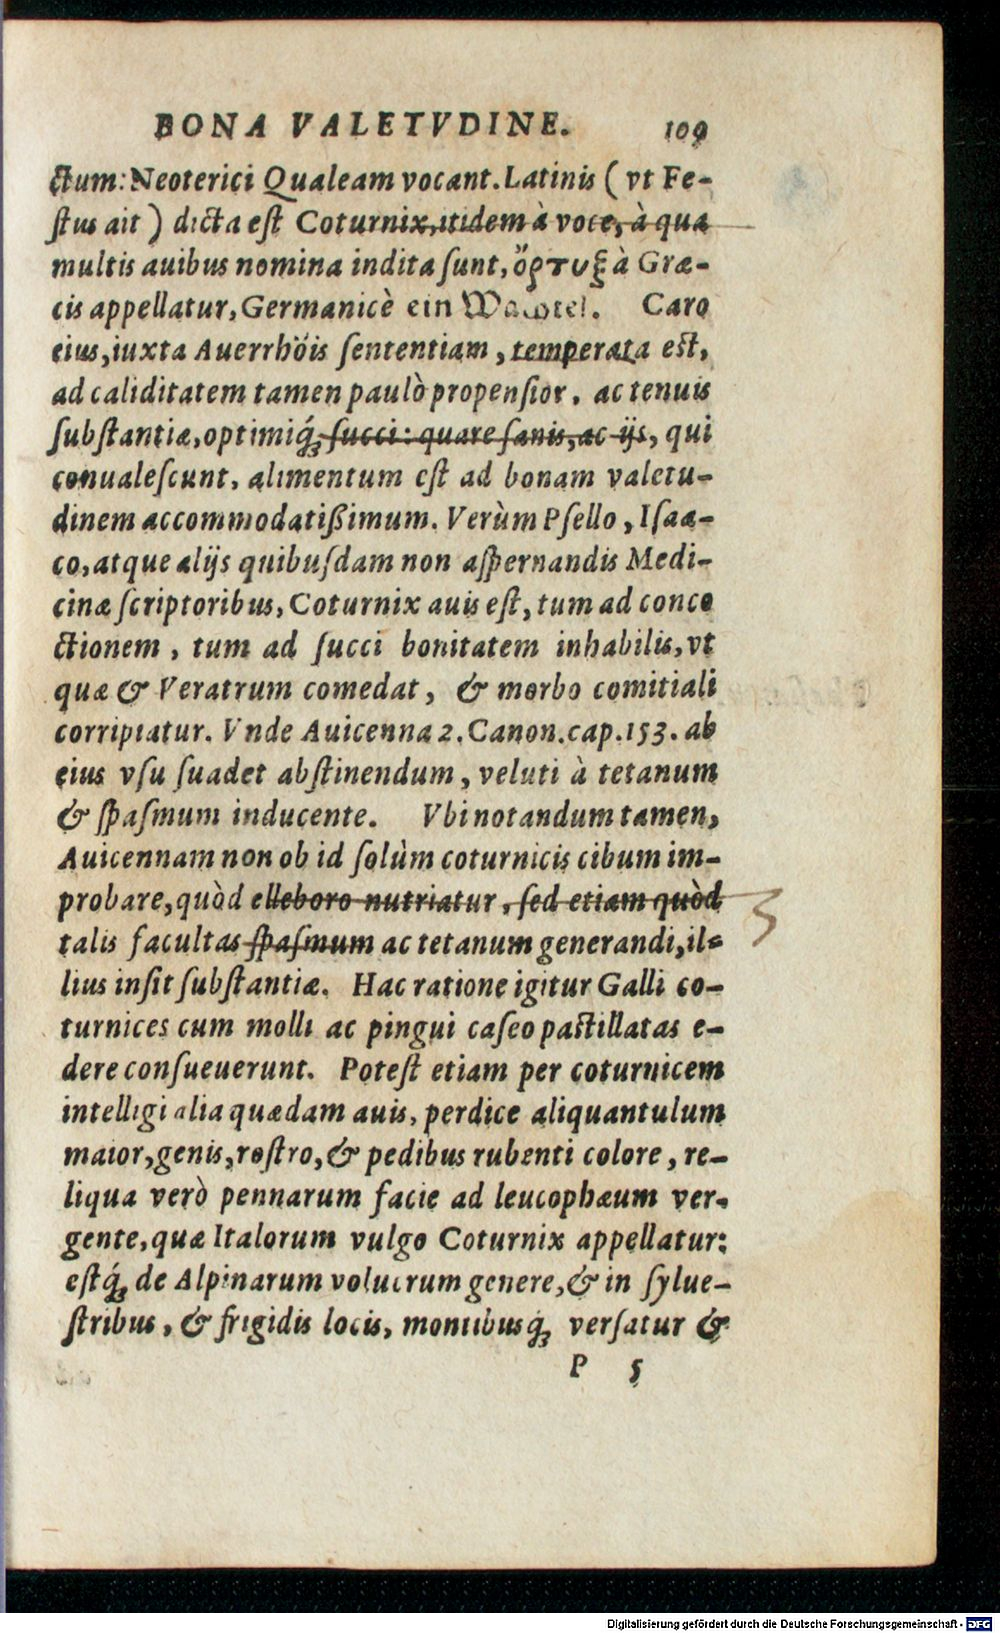 BONA VALETVDINE. 109
ctum: Neoterici Qualeam vocant. Latinis (vt Fe-
ſtus ait) dicta eſt Coturnix, itidem à voce, à qua
multis auibus nomina indita ſunt, ὄρτυξ à Græ-
cis appellatur, Germanicè ein Wachtel. Caro
eius, iuxta Auerrhöis ſententiam, temperata eſt,
ad caliditatem tamen paulò propenſior, ac tenuis
ſubſtantiæ, optimiq́; ſucci: quare ſanis, ac ijs, qui
conualeſcunt, alimentum eſt ad bonam valetu-
dinem accommodatißimum. Verùm Pſello, Iſaa-
co, atque alijs quibuſdam non aſpernandis Medi-
cinæ ſcriptoribus, Coturnix auis eſt, tum ad conco
ctionem, tum ad ſucci bonitatem inhabilis, vt
quæ & Veratrum comedat, & morbo comitiali
corripiatur. Vnde Auicenna 2. Canon. cap. 153. ab
eius vſu ſuadet abſtinendum, veluti à tetanum
& ſpaſmum inducente. Vbi notandum tamen,
Auicennam non ob id ſolùm coturnicis cibum im-
probare, quòd elleboro nutriatur, ſed etiam quòd
talis facultas ſpaſmum ac tetanum generandi, il-
lius inſit ſubſtantiæ. Hac ratione igitur Galli co-
turnices cum molli ac pingui caſeo paſtillatas e-
dere conſueuerunt. Poteſt etiam per coturnicem
intelligi alia quædam auis, perdice aliquantulum
maior, genis, roſtro, & pedibus rubenti colore, re-
liqua verò pennarum facie ad leucophæum ver-
gente, quæ Italorum vulgo Coturnix appellatur:
eſtq́; de Alpinarum volucrum genere, & in ſylue-
ſtribus, & frigidis locis, montibusq́; verſatur &
P 5
Digitalisierung gefördert durch die Deutsche Forschungsgemeinschaft - DFG